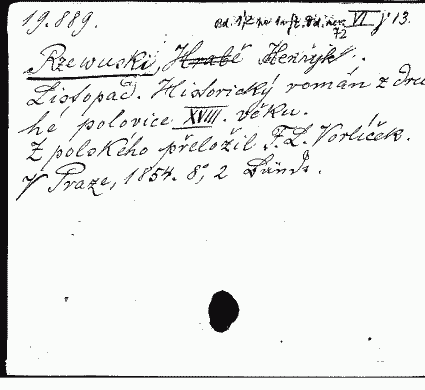 19.889.
VI j 13.
72
Rzewuski, Hrabě Henryk.
Listopad. Historický román z dru
hé polovice XVIII. věku.
Z polského přeložil F. L. Vorlíček.
V Praze, 1854. 8°, 2 Bände.